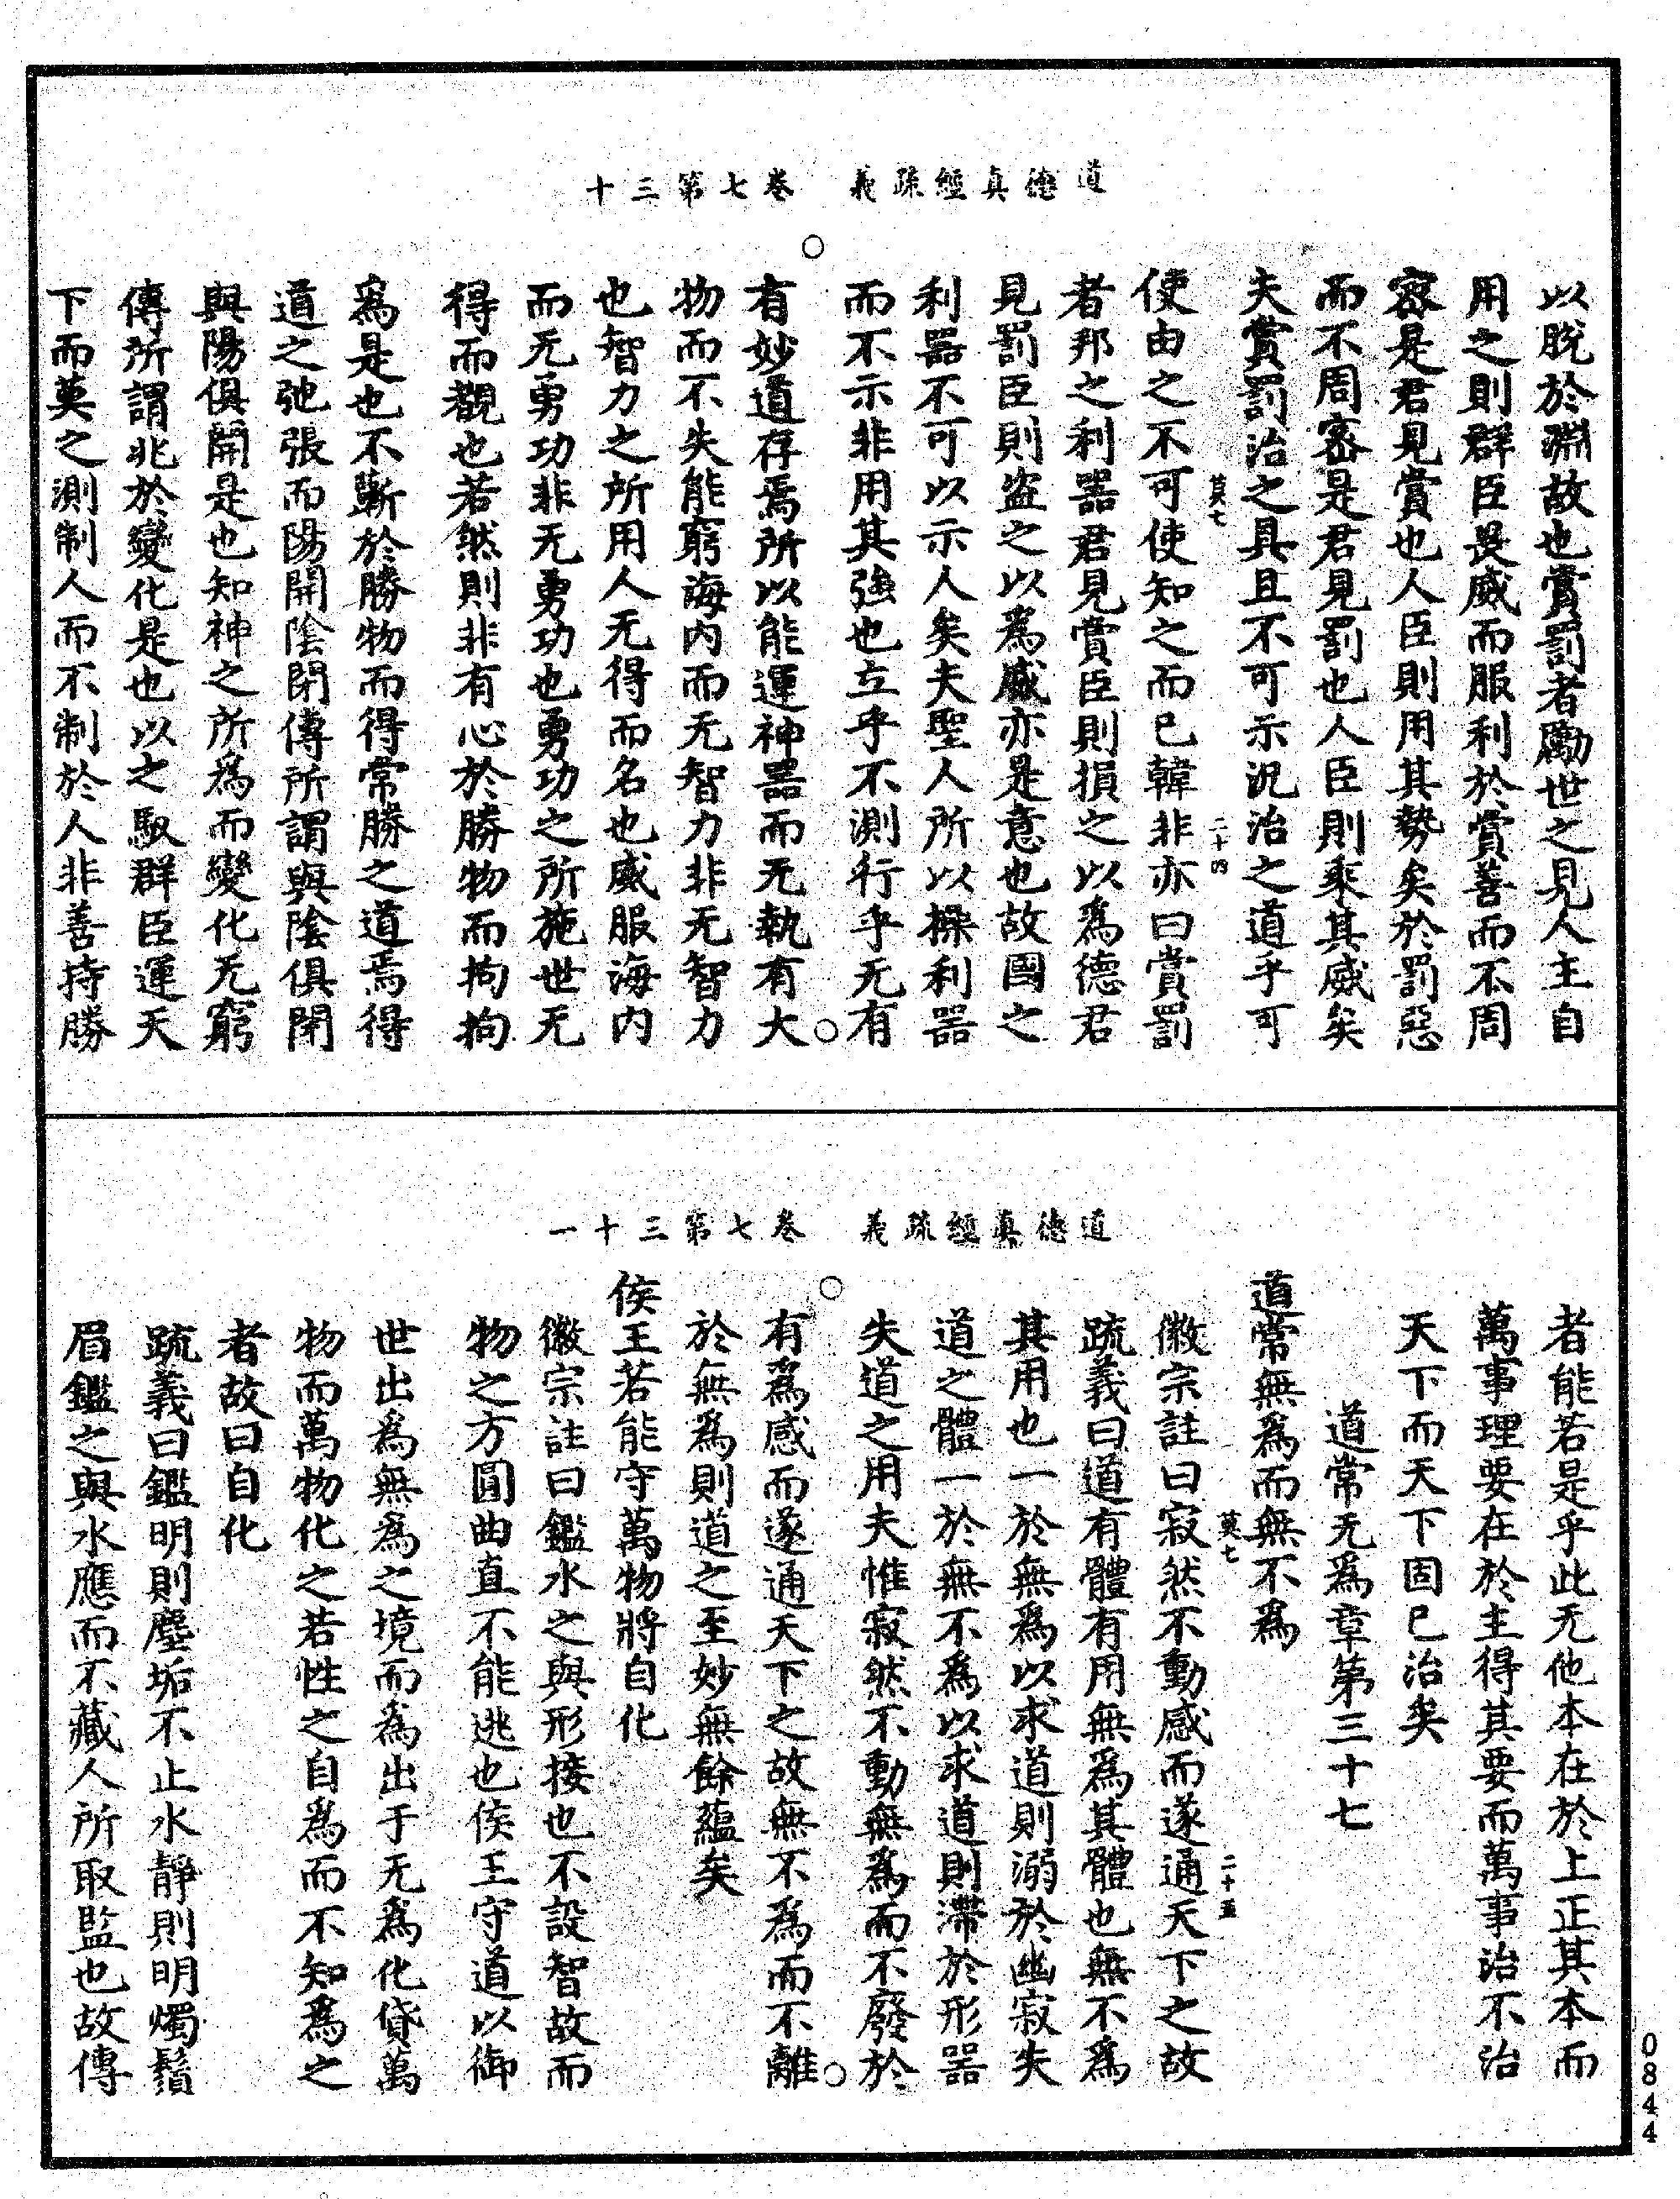 道德真經疏義　卷七第三十
以脫於淵故也賞罰者勵世之見人主自
用之則群臣畏威而服利於賞善而不周
密是君見賞也人臣則用其勢矣於罰惡
而不周密是君見罰也人臣則乘其威矣
夫賞罰治之具且不可示況治之道乎可
莫七　二十四
使由之不可使知之而已韓非亦曰賞罰
者邦之利器君見賞臣則損之以為德君
見罰臣則盜之以為威亦是意也故國之
利器不可以示人矣夫聖人所以操利器
而不示非用其強也立乎不測行乎无有
有妙道存焉所以能運神器而无執有大
物而不失能窮海內而无智力非无智力
也智力之所用人无得而名也威服海內
而无勇功非无勇功也勇功之所施世无
得而觀也若然則非有心於勝物而拘拘
為是也不蘄於勝物而得常勝之道焉得
道之弛張而陽開陰閉傳所謂與陰俱閉
與陽俱開是也知神之所為而變化无窮
傳所謂兆於變化是也以之馭群臣運天
下而莫之測制人而不制於人非善持勝
道德真經疏義　卷七第三十一
者能若是乎此无他本在於上正其本而
萬事理要在於主得其要而萬事治不治
天下而天下固已治矣
道常无為章第三十七
道常無為而無不為
莫七　二十五
徽宗註曰寂然不動感而遂通天下之故
疏義曰道有體有用無為其體也無不為
其用也一於無為以求道則溺於幽寂失
道之體一於無不為以求道則滯於形器
失道之用夫惟寂然不動無為而不廢於
有為感而遂通天下之故無不為而不離
於無為則道之至妙無餘蘊矣
侯王若能守萬物將自化
徽宗註曰鑑水之與形接也不設智故而
物之方圓曲直不能逃也侯王守道以御
世出為無為之境而為出于无為化貸萬
物而萬物化之若性之自為而不知為之
者故曰自化
疏義曰鑑明則塵垢不止水靜則明燭鬚
眉鑑之與水應而不藏人所取監也故傳
0844